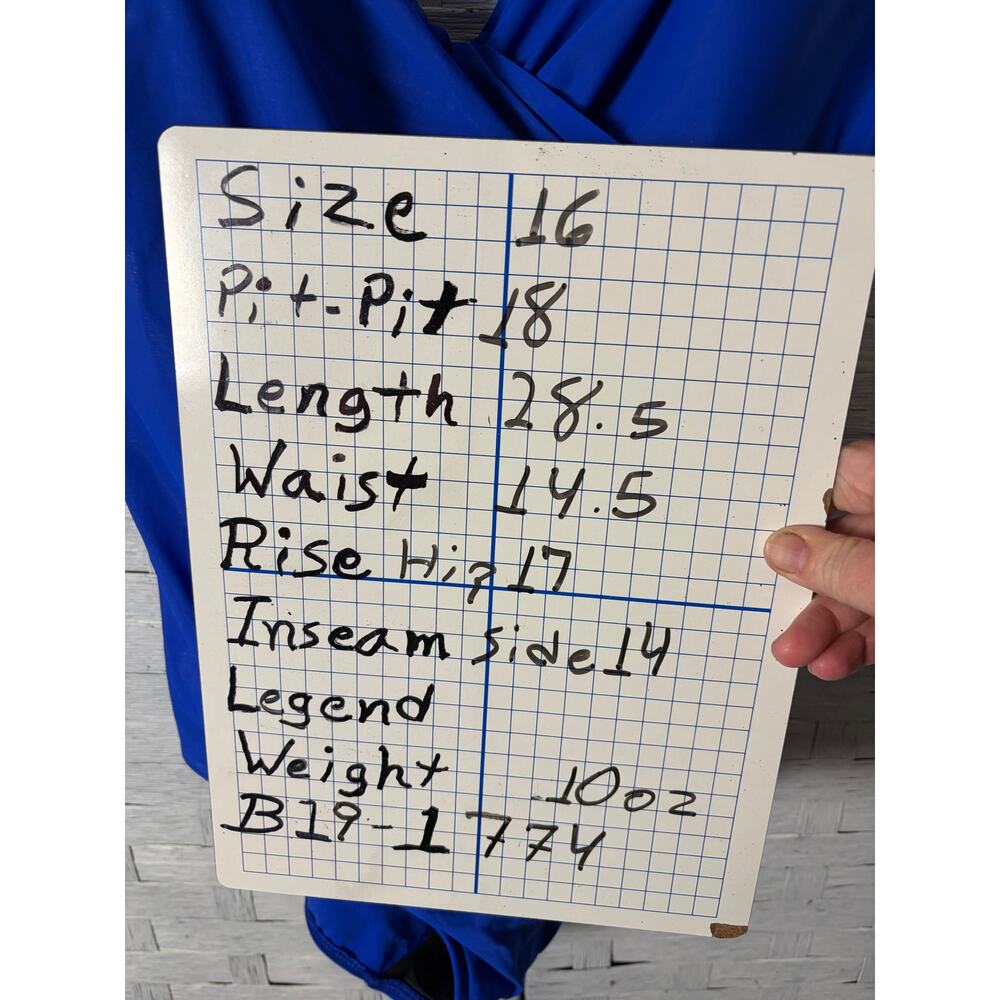 Size 16
Pit-Pit 18
Length 28.5
Waist 14.5
Rise Hip 17
Inseam side 14
Legend
Weight 10oz
B19-1774